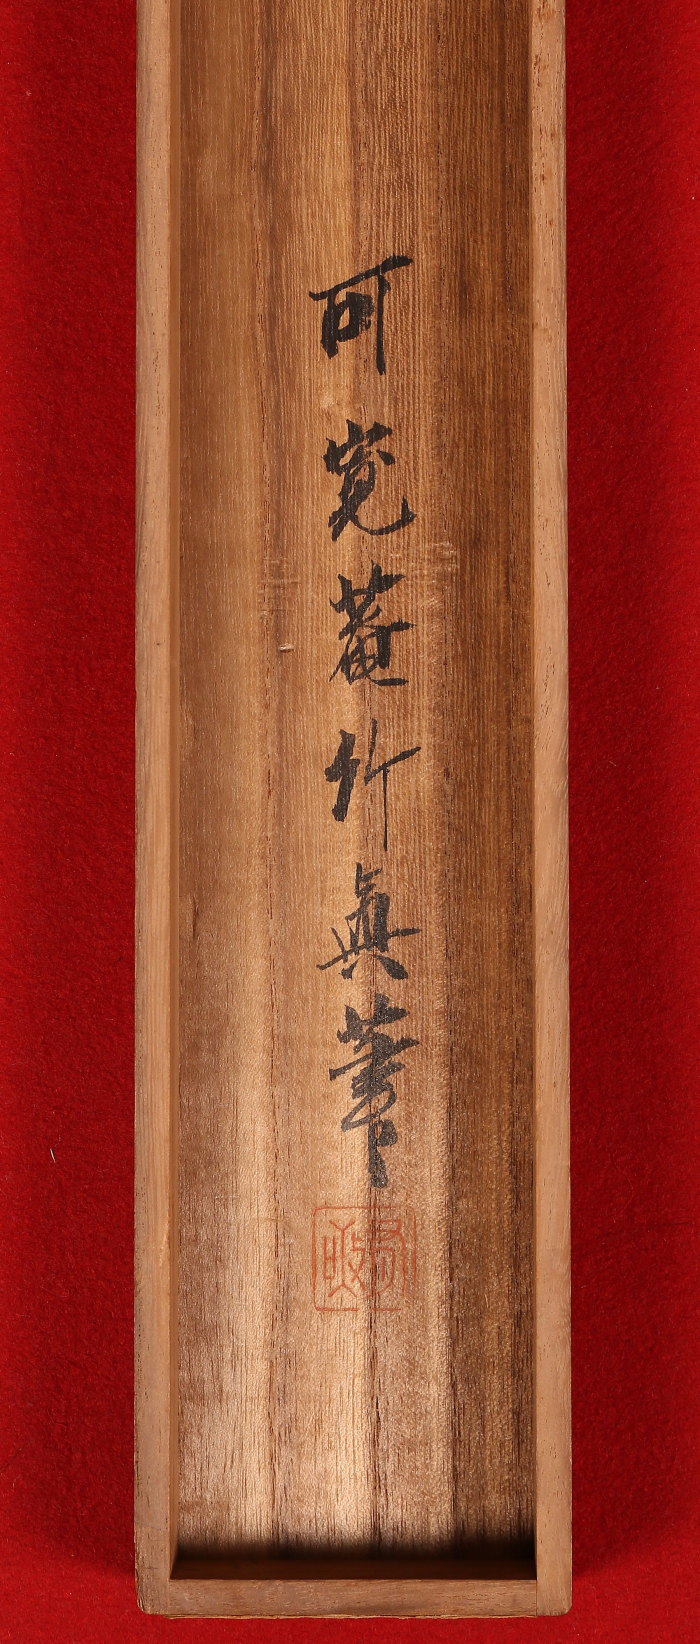 可寛菴竹真筆